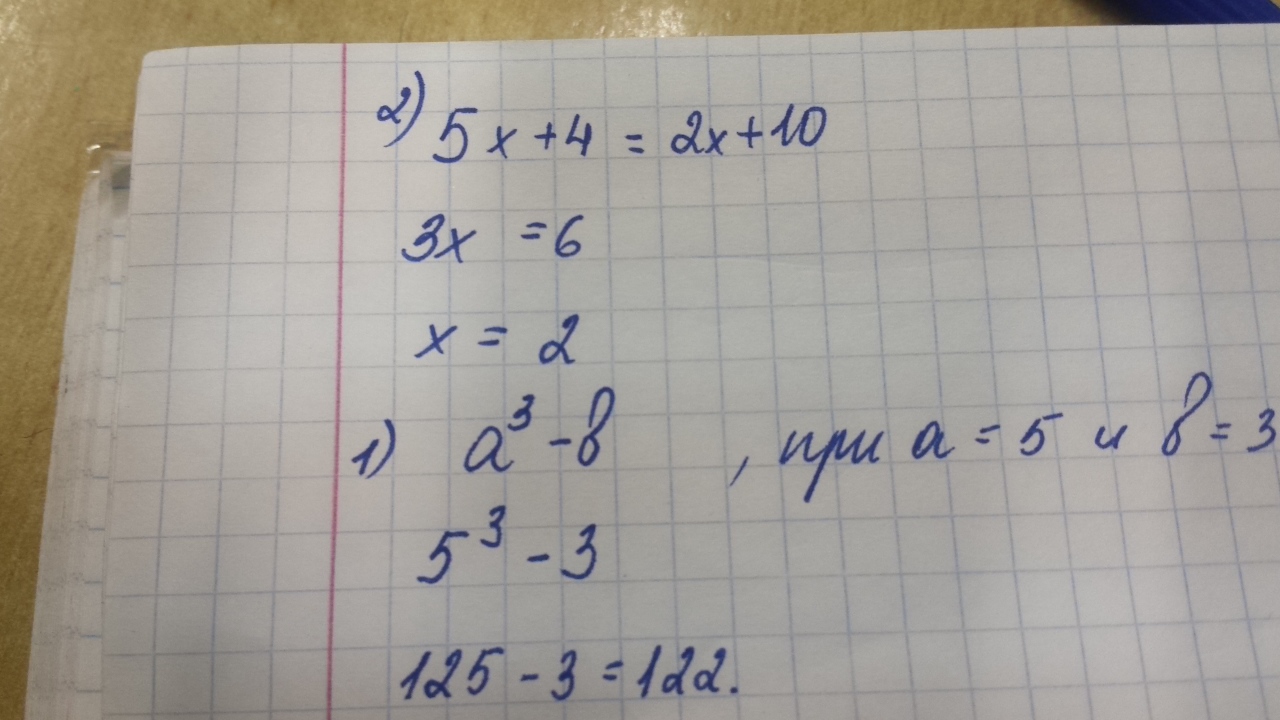 2) 5x+4 = 2x+10
3x = 6
x = 2
1) a³ - в , при a = 5 и в = 3
5³ - 3
125 - 3 = 122.